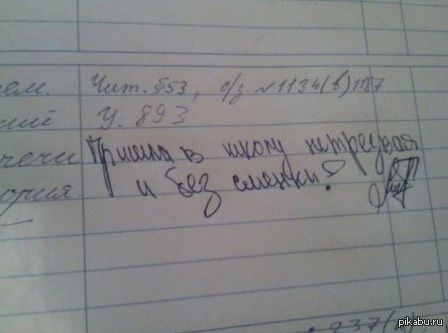 ем. Чит. §53, с/з №1134(в)1187
ский у. 893
речи Пришла в школу нетрезвая
ория и без сменки!
237/
pikabu.ru